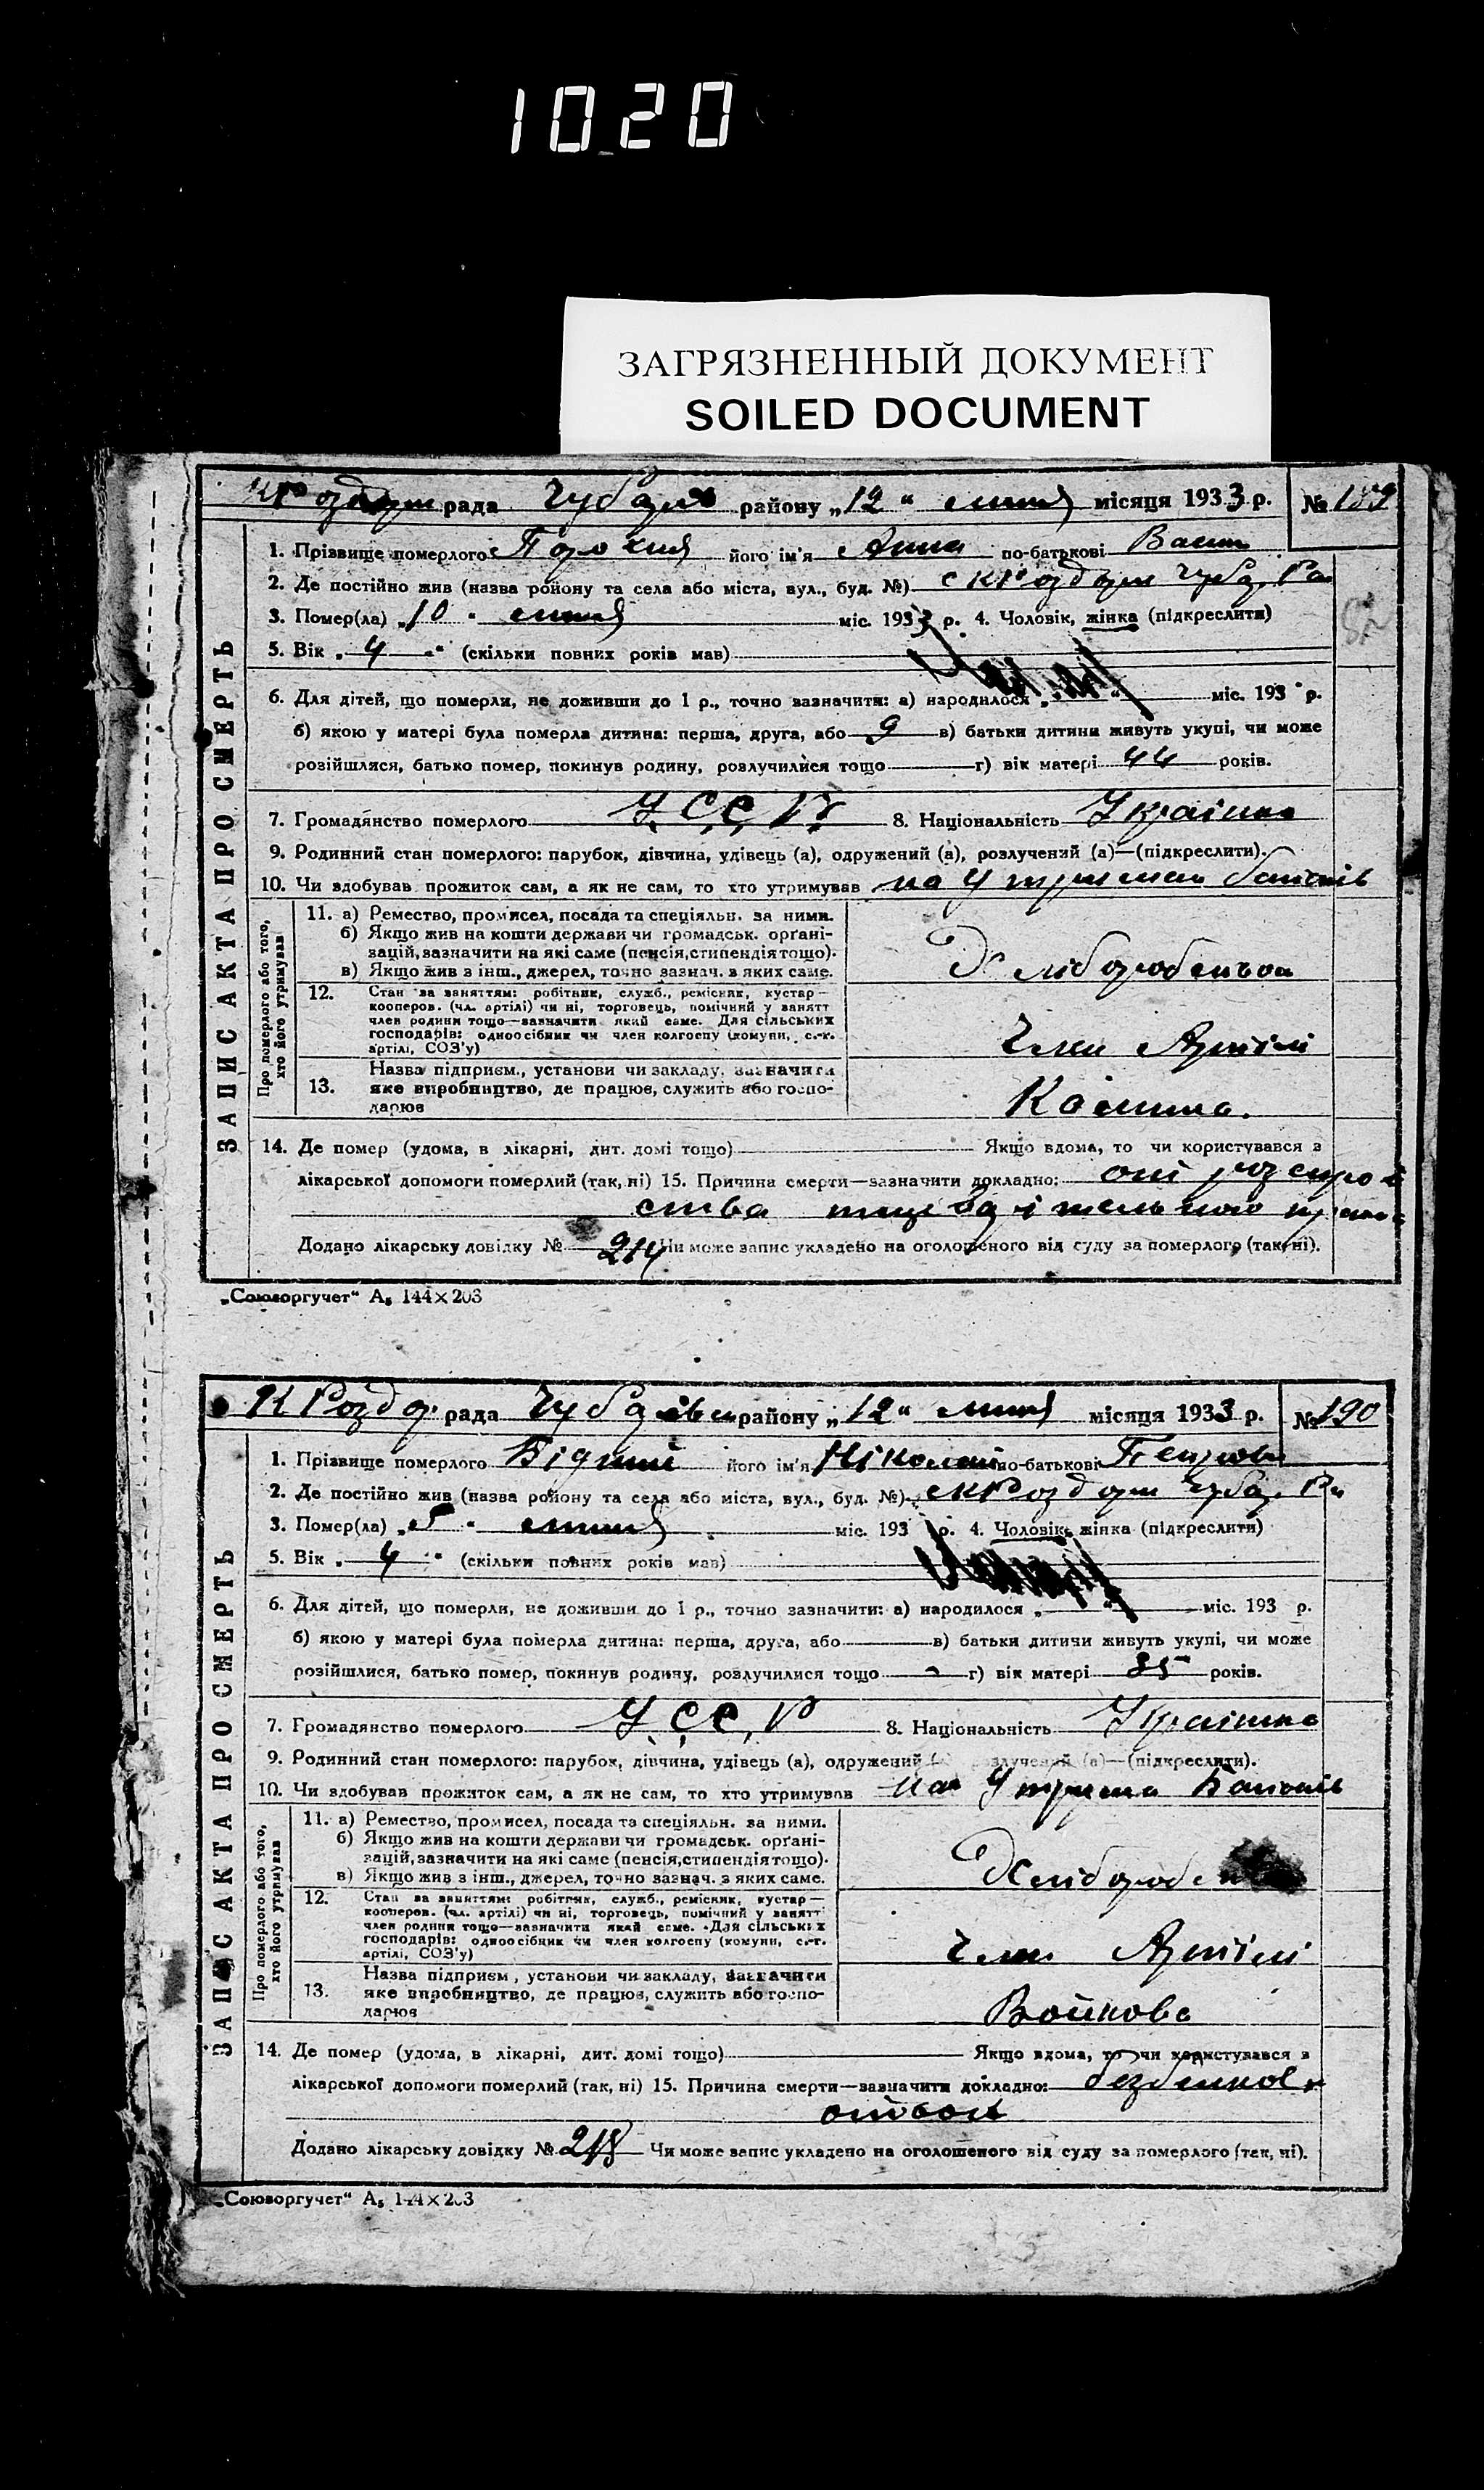 1020
ЗАГРЯЗНЕННЫЙ ДОКУМЕНТ
SOILED DOCUMENT
ЗАПИС АКТА ПРО СМЕРТЬ
рада района „12“ місяця 1933 р. № 189
1. Прізвище померлого його ім'я Анна по-батькові Васил
2. Де постійно жив (назва району та села або міста, вул., буд. №)
3. Помер(ла) „10“ липня міс. 1933 р. 4. Чоловік, жінка (підкреслити)
5. Вік „4“ (скільки повних років мав)
6. Для дітей, що померли, не доживши до 1 р., точно зазначити: а) народилося „ “ міс. 193 р.
б) якою у матері була померла дитина: перша, друга, або 9 в) батьки дитини живуть укупі, чи може
розійшлися, батько помер, покинув родину, розлучилися тощо г) вік матері 44 років.
7. Громадянство померлого У.С.С.Р. 8. Національність Україн
9. Родинний стан померлого: парубок, дівчина, удівець (а), одружений (а), розлучений (а)—(підкреслити).
10. Чи здобував прожиток сам, а як не сам, то хто утримував на Утриман батьків
Про померлого або того, хто його утримував
11. а) Ремество, промисел, посада та спеціяльн. за ними.
б) Якщо жив на кошти держави чи громадськ. орґані-
зацій, зазначити на які саме (пенсія, стипендія тощо).
в) Якщо жив з інш., джерел, точно зазнач. з яких саме.
12. Стан за заняттям: робітник, служб., ремісник, кустар—
кооперов. (чл. артілі) чи ні, торговець, помічний у занятт
член родини тощо—зазначити який саме. Для сільських
господарів: одноосібник чи член колгоспу (комуни, с.-г.
артілі, СОЗ'у)
Член Артілі
13. Назва підприєм., установи чи закладу, зазначити
яке виробництво, де працює, служить або госпо-
дарює
14. Де помер (удома, в лікарні, дит. домі тощо) Якщо вдома, то чи користувався з
лікарської допомоги померлий (так, ні) 15. Причина смерти—зазначити докладно: от розстро
ства
Додано лікарську довідку № 214 Чи може запис укладено на оголошеного від суду за померлого (так, ні).
„Союзоргучет“ А₅ 144×203
ЗАПИС АКТА ПРО СМЕРТЬ
рада району „12“ липня місяця 1933 р. № 190
1. Прізвище померлого Бідний його ім'я Ніколай по-батькові Петров
2. Де постійно жив (назва району та села або міста, вул., буд. №)
3. Помер(ла) „5“ липня міс. 193 р. 4. Чоловік, жінка (підкреслити)
5. Вік „4“ (скільки повних років мав)
6. Для дітей, що померли, не доживши до 1 р., точно зазначити: а) народилося „ “ міс. 193 р.
б) якою у матері була померла дитина: перша, друга, або в) батьки дитини живуть укупі, чи може
розійшлися, батько помер, покинув родину, розлучилися тощо г) вік матері 35 років.
7. Громадянство померлого У.С.С.Р 8. Національність Україн
9. Родинний стан померлого: парубок, дівчина, удівець (а), одружений (а) розлучений (а)—(підкреслити).
10. Чи здобував прожиток сам, а як не сам, то хто утримував на Утрима Батьків
Про померлого або того, хто його утримував
11. а) Ремество, промисел, посада та спеціяльн. за ними.
б) Якщо жив на кошти держави чи громадськ. орґані-
зацій, зазначити на які саме (пенсія, стипендія тощо).
в) Якщо жив з інш., джерел, точно зазнач. з яких саме.
12. Стан за заняттям: робітник, служб., ремісник, кустар—
кооперов. (чл. артілі) чи ні, торговець, помічний у занятт
член родини тощо—зазначити який саме. Для сільських
господарів: одноосібник чи член колгоспу (комуни, с.-г.
артілі, СОЗ'у)
Член Артілі
13. Назва підприєм., установи чи закладу, зазначити
яке виробництво, де працює, служить або госпо-
дарює
Войкова
14. Де помер (удома, в лікарні, дит. домі тощо) Якщо вдома, то чи користувався з
лікарської допомоги померлий (так, ні) 15. Причина смерти—зазначити докладно:
Додано лікарську довідку № 215 Чи може запис укладено на оголошеного від суду за померлого (так, ні).
„Союзоргучет“ А₅ 144×203